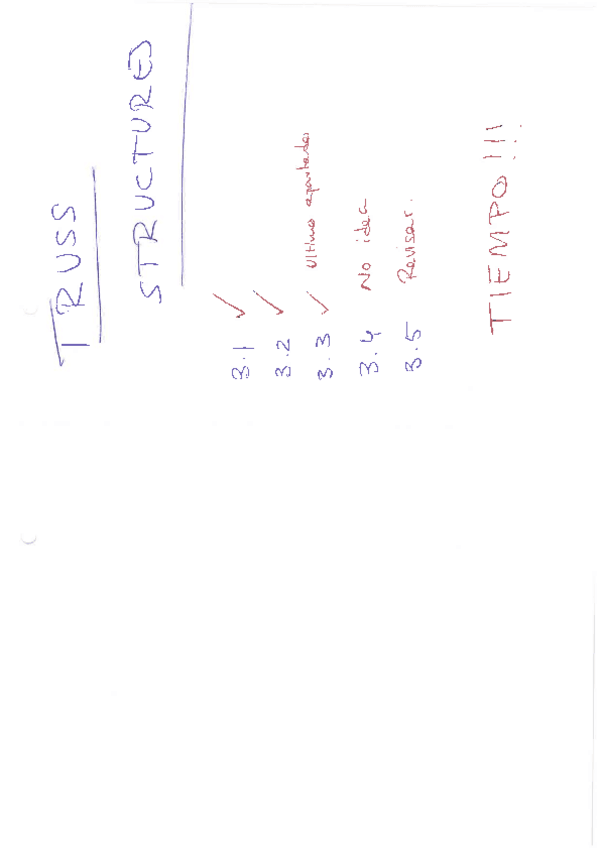 TRUSS
STRUCTURES
3.1 ✓
3.2 ✓
3.3 ✓ Ultimo apartado
3.4 No idea
3.5 Revisar.
TIEMPO!!!